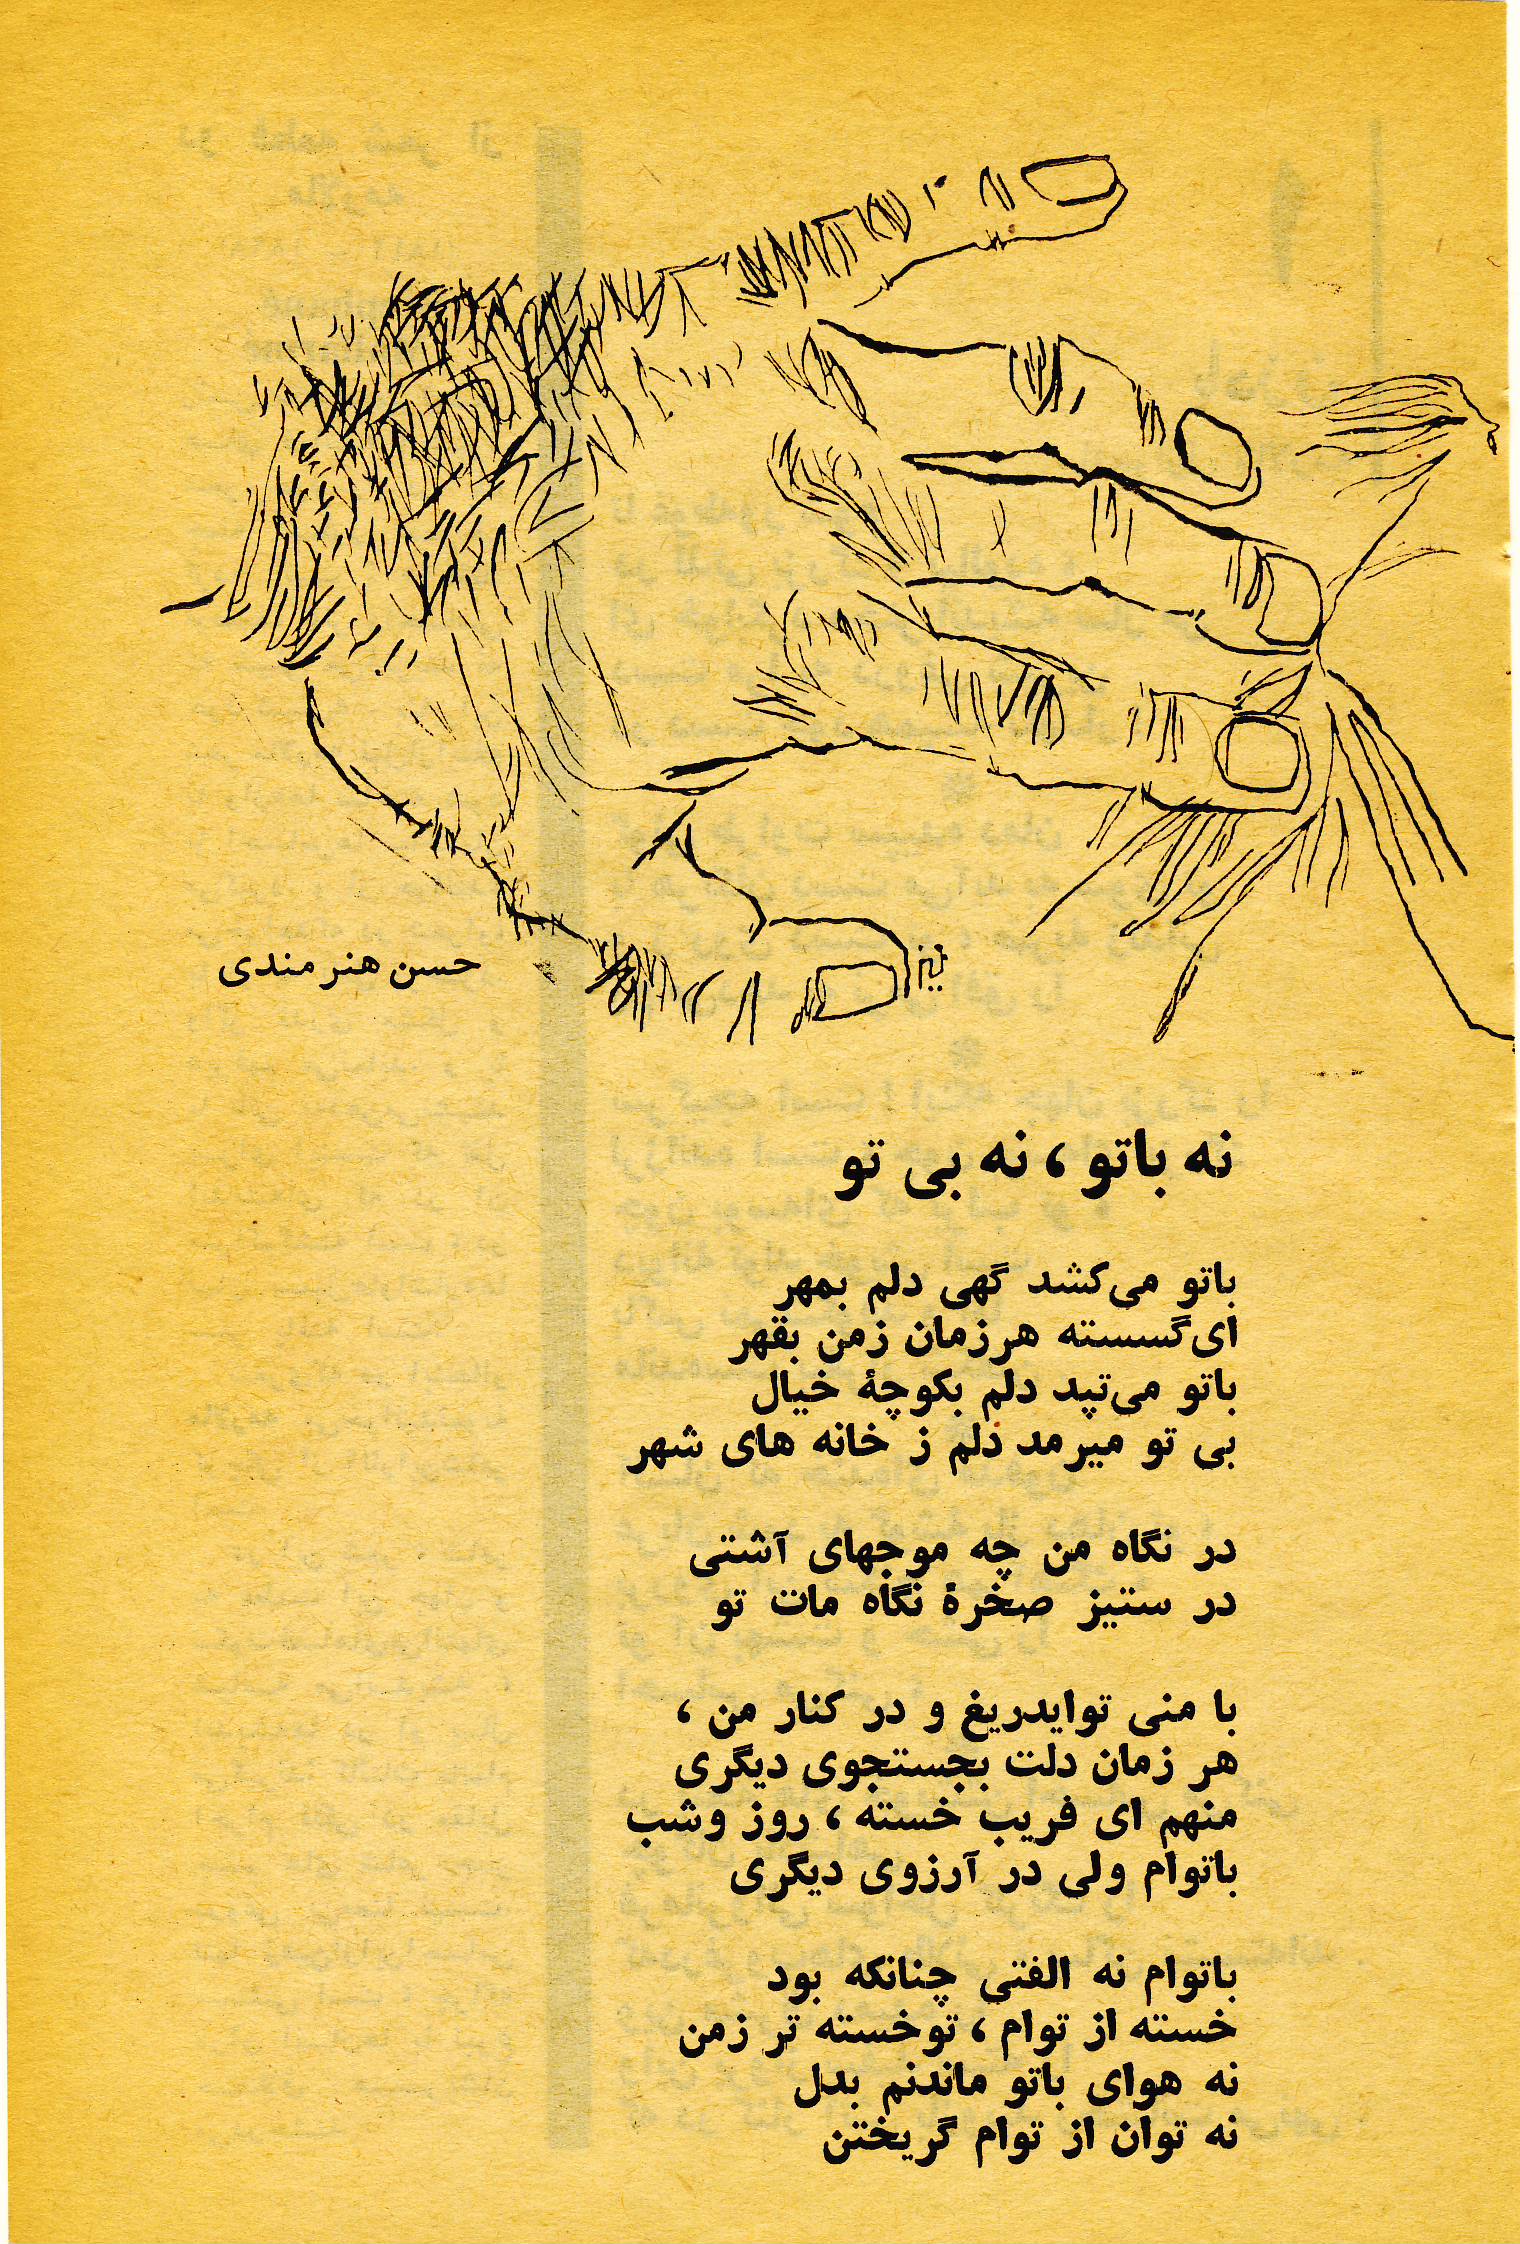 حسن هنرمندی
نه باتو ، نه بی تو
باتو می‌کشد گهی دلم بمهر
ای‌گسسته هرزمان زمن بقهر
باتو می‌تپد دلم بکوچهٔ خیال
بی تو میرمد دلم ز خانه های شهر
در نگاه من چه موجهای آشتی
در ستیز صخرهٔ نگاه مات تو
با منی توایدریغ و در کنار من ،
هر زمان دلت بجستجوی دیگری
منهم ای فریب خسته ، روز وشب
باتوام ولی در آرزوی دیگری
باتوام نه الفتی چنانکه بود
خسته از توام ، توخسته تر زمن
نه هوای باتو ماندنم بدل
نه توان از توام گریختن